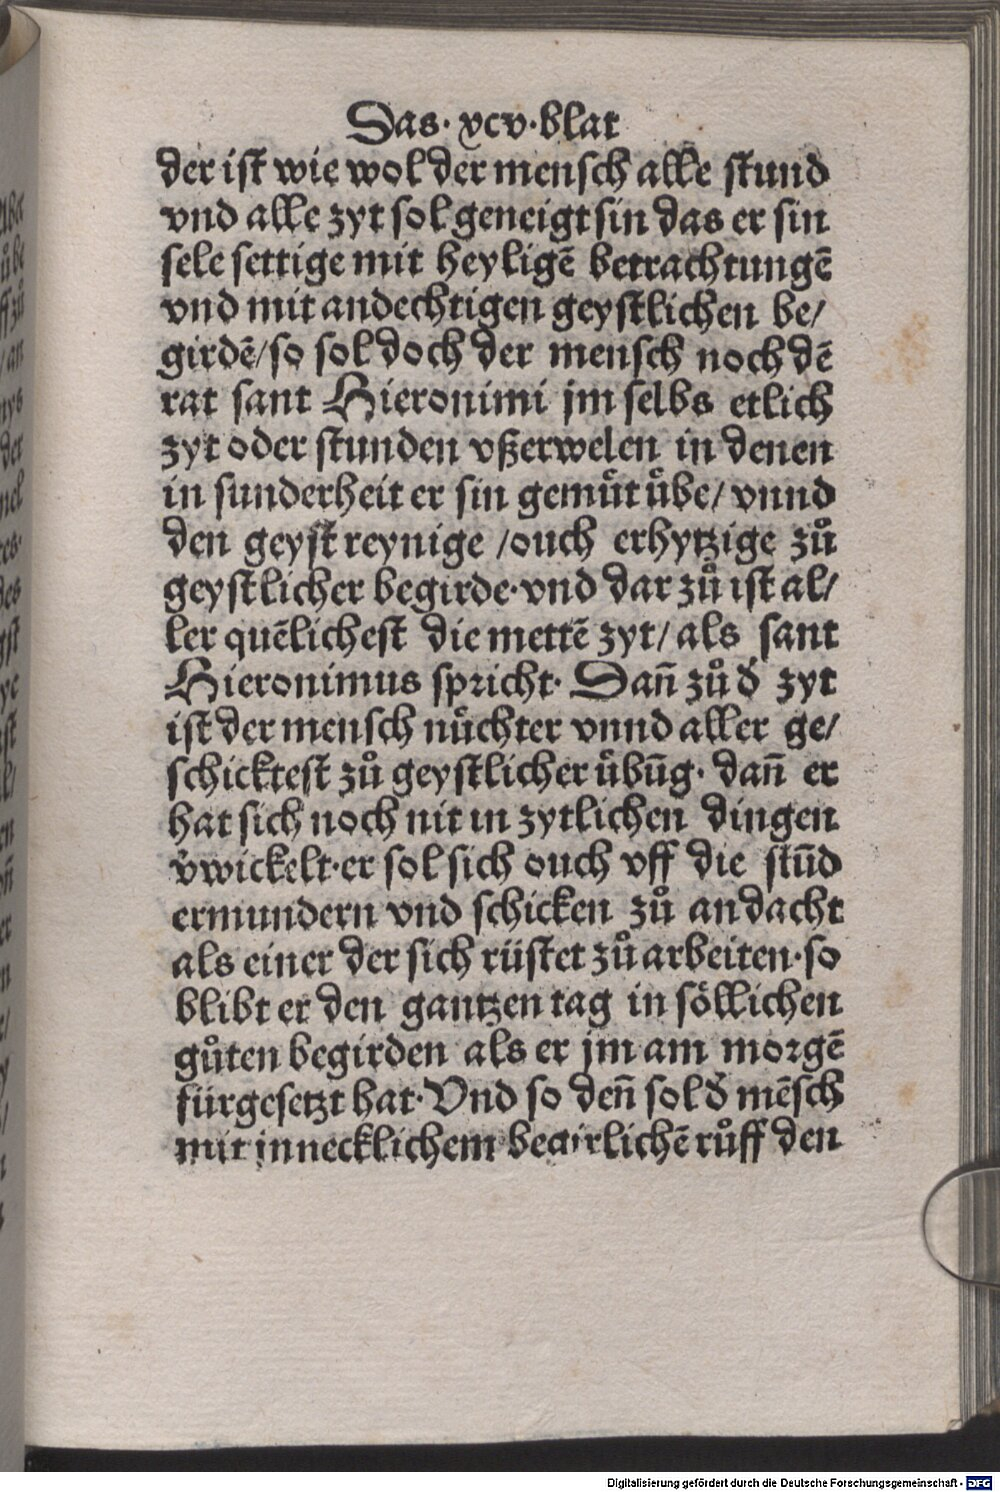 Das· xcv·blat
der ist wie wol der mensch alle stund
vnd alle zyt sol geneigt sin das er sin
sele settige mit heyligē betrachtungē
vnd mit andechtigen geystlichen be/
girdē/so sol doch der mensch noch dē
rat sant Hieronimi jm selbs etlich
zyt oder stunden vßerwelen in denen
in sunderheit er sin gemuͤt uͤbe/ vnnd
den geyst reynige /ouch erhytzige zuͦ
geystlicher begirde·vnd dar zuͦ ist al/
ler quēlichest die mettē zyt/ als sant
Hieronimus spricht· Dañ zuͦ d̕ zyt
ist der mensch nuͤchter vnnd aller ge/
schicktest zuͦ geystlicher uͤbūg· dañ er
hat sich noch nit in zytlichen dingen
v̕wickelt·er sol sich ouch vff die stūd
ermundern vnd schicken zuͦ andacht
als einer der sich rüstet zuͦ arbeiten·so
blibt er den gantzen tag in söllichen
guͦten begirden als er jm am morgē
fürgesetzt hat·Vnd so deñ sol d̕ mēsch
mit innecklichem begirlichē ruͦff den
Digitalisierung gefördert durch die Deutsche Forschungsgemeinschaft - DFG